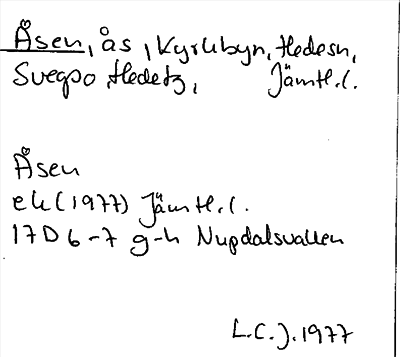 Åsen, ås, Kyrkbyn, Hedesn,
Svegso, Hedetz, Jämtl.l.
Åsen
ek (1977) Jämtl.l.
17D 6-7 g-h Nupdalsvallen
L.C.J. 1977